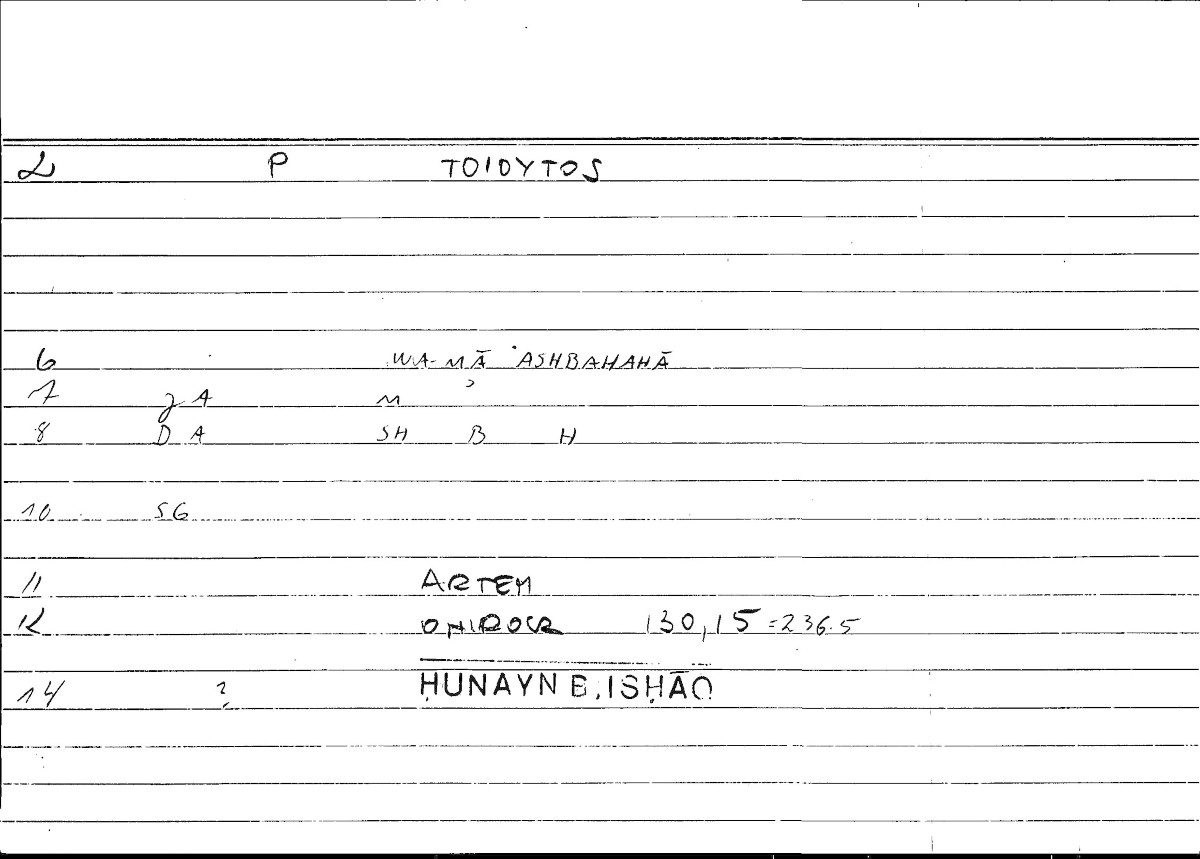 2 P TOIOYTOS
6 WA-MĀ 'ASHBAHAHĀ
7 JA M
8 DA SH B H
10 SG
11 ARTEM
12 ONIROCR 130,15 =236.5
14 ? ḤUNAYN B. ISḤĀQ